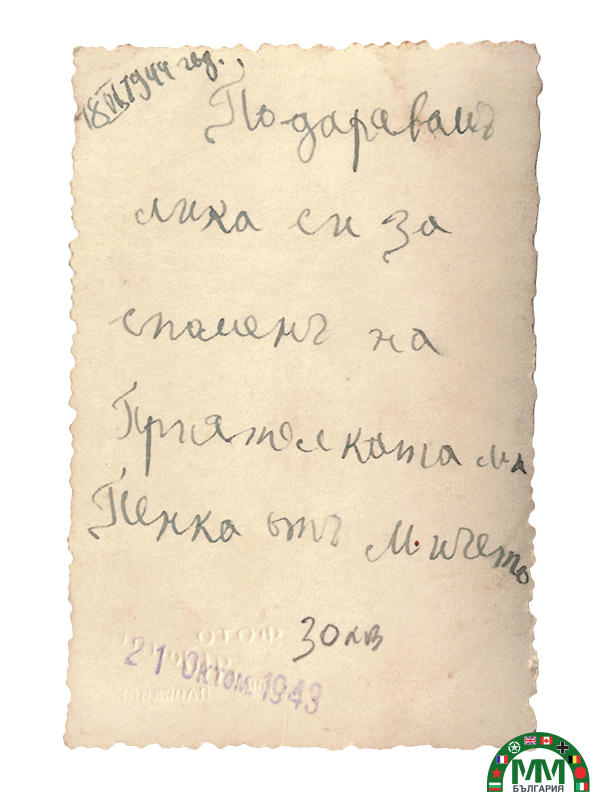 18 VI 1944 год.
Подаравамъ
лика си за
споменъ на
Приятелката ми
Пенка отъ М.ичето
30 лв
ФОТО
21 Октом. 1943
ММ
БЪЛГАРИЯ